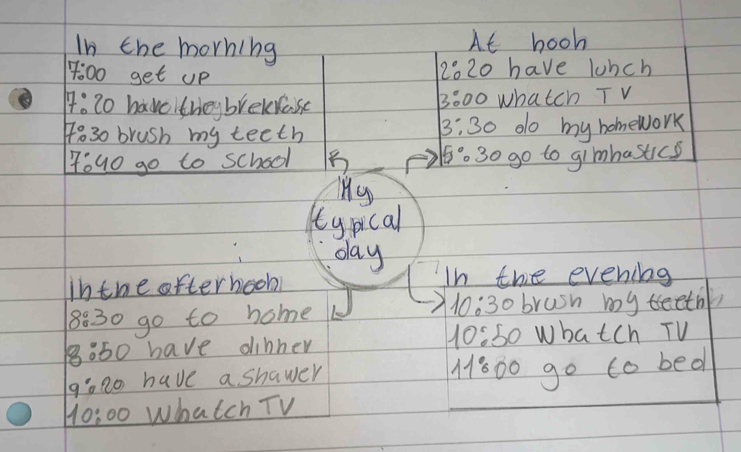 In the morning
7:00 get up
7:20 have the brekfase
7:30 brush my teeth
7:40 go to school
At noon
2:20 have lunch
3:00 whatch TV
3:30 do my homework
5:30 go to gimnastics
My
typical
day
In the afternoon
8:30 go to home
8:50 have dinner
9:20 have a shawer
10:00 whatch TV
In the evening
10:30 brush my teeth
10:50 whatch TV
11:00 go to bed